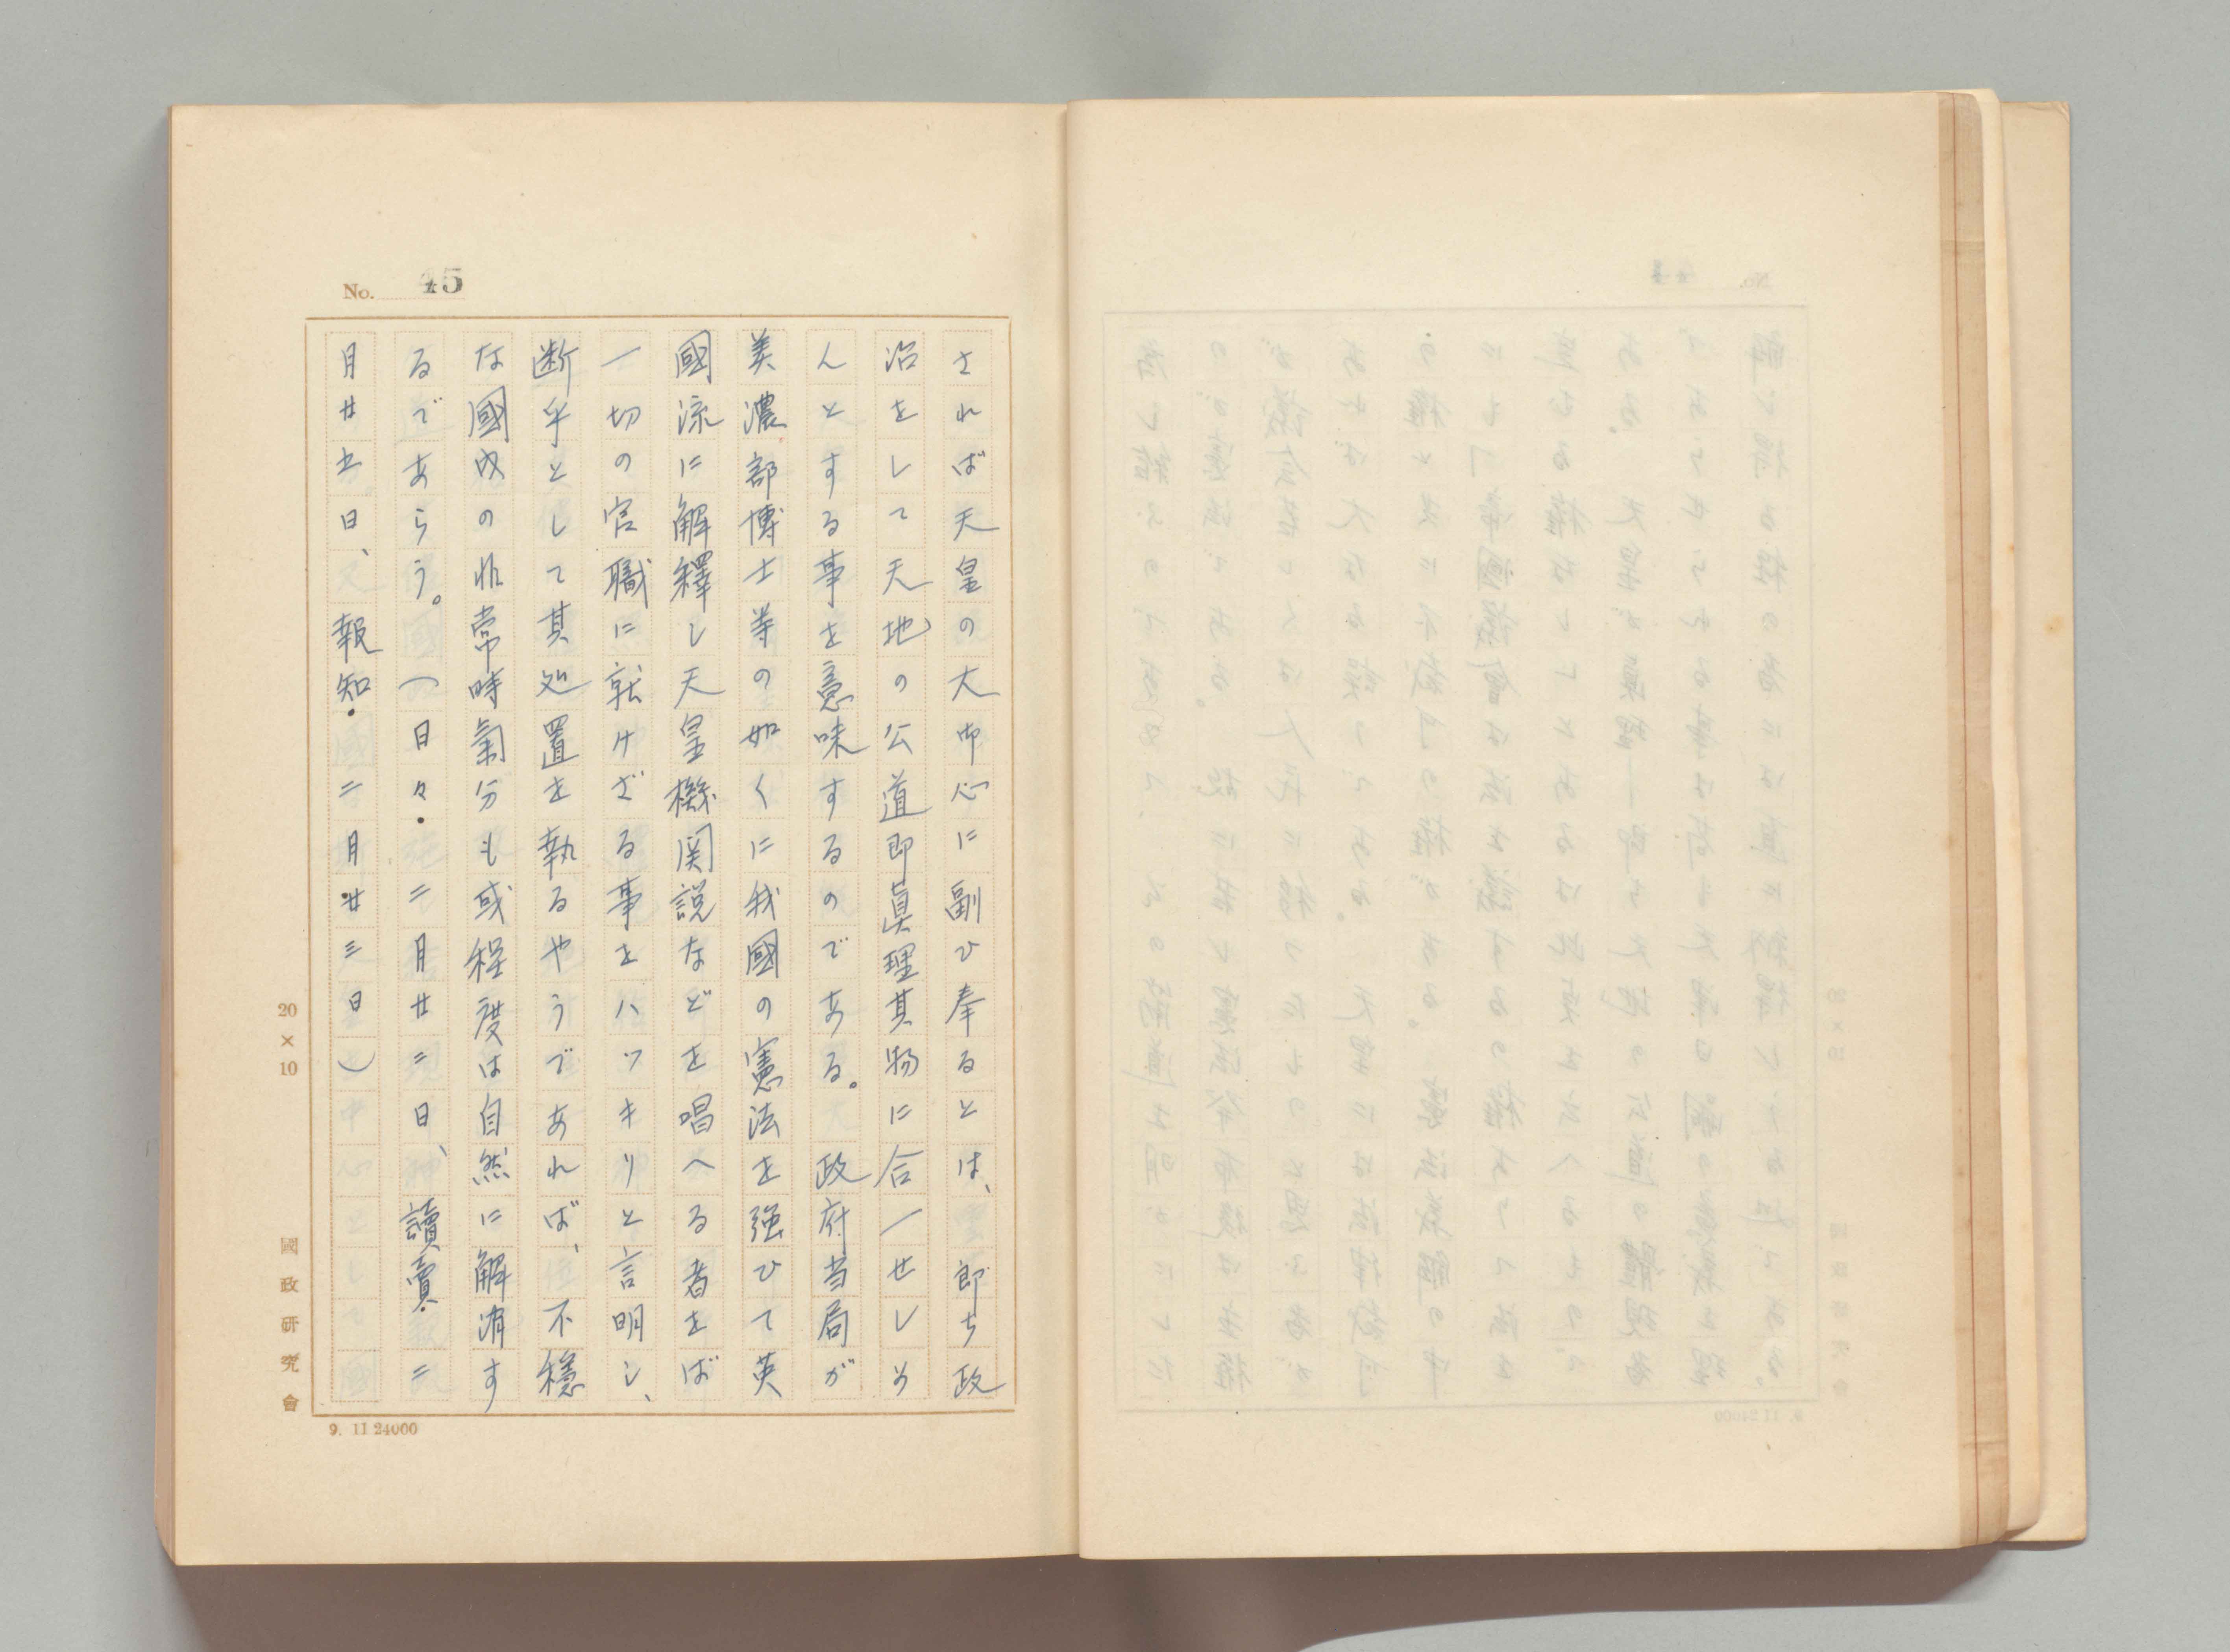 No. 45
されば天皇の大御心に副ひ奉るとは、即ち政
治をして天地の公道即眞理其物に合一せしめ
んとする事を意味するのである。政府当局が
美濃部博士等の如くに我國の憲法を强ひて英
國流に解釋し天皇機関説などを唱へる者をば
一切の官職に就けざる事をハツキリと言明し、
断乎として其処置を執るやうであれば、不穩
な國内の非常時氣分も或程度は自然に解消す
るであらう。（日々・二月廿二日、讀賣・二
月廿五日、報知・二月廿三日）
20×10
國政研究會
9. 11 24000